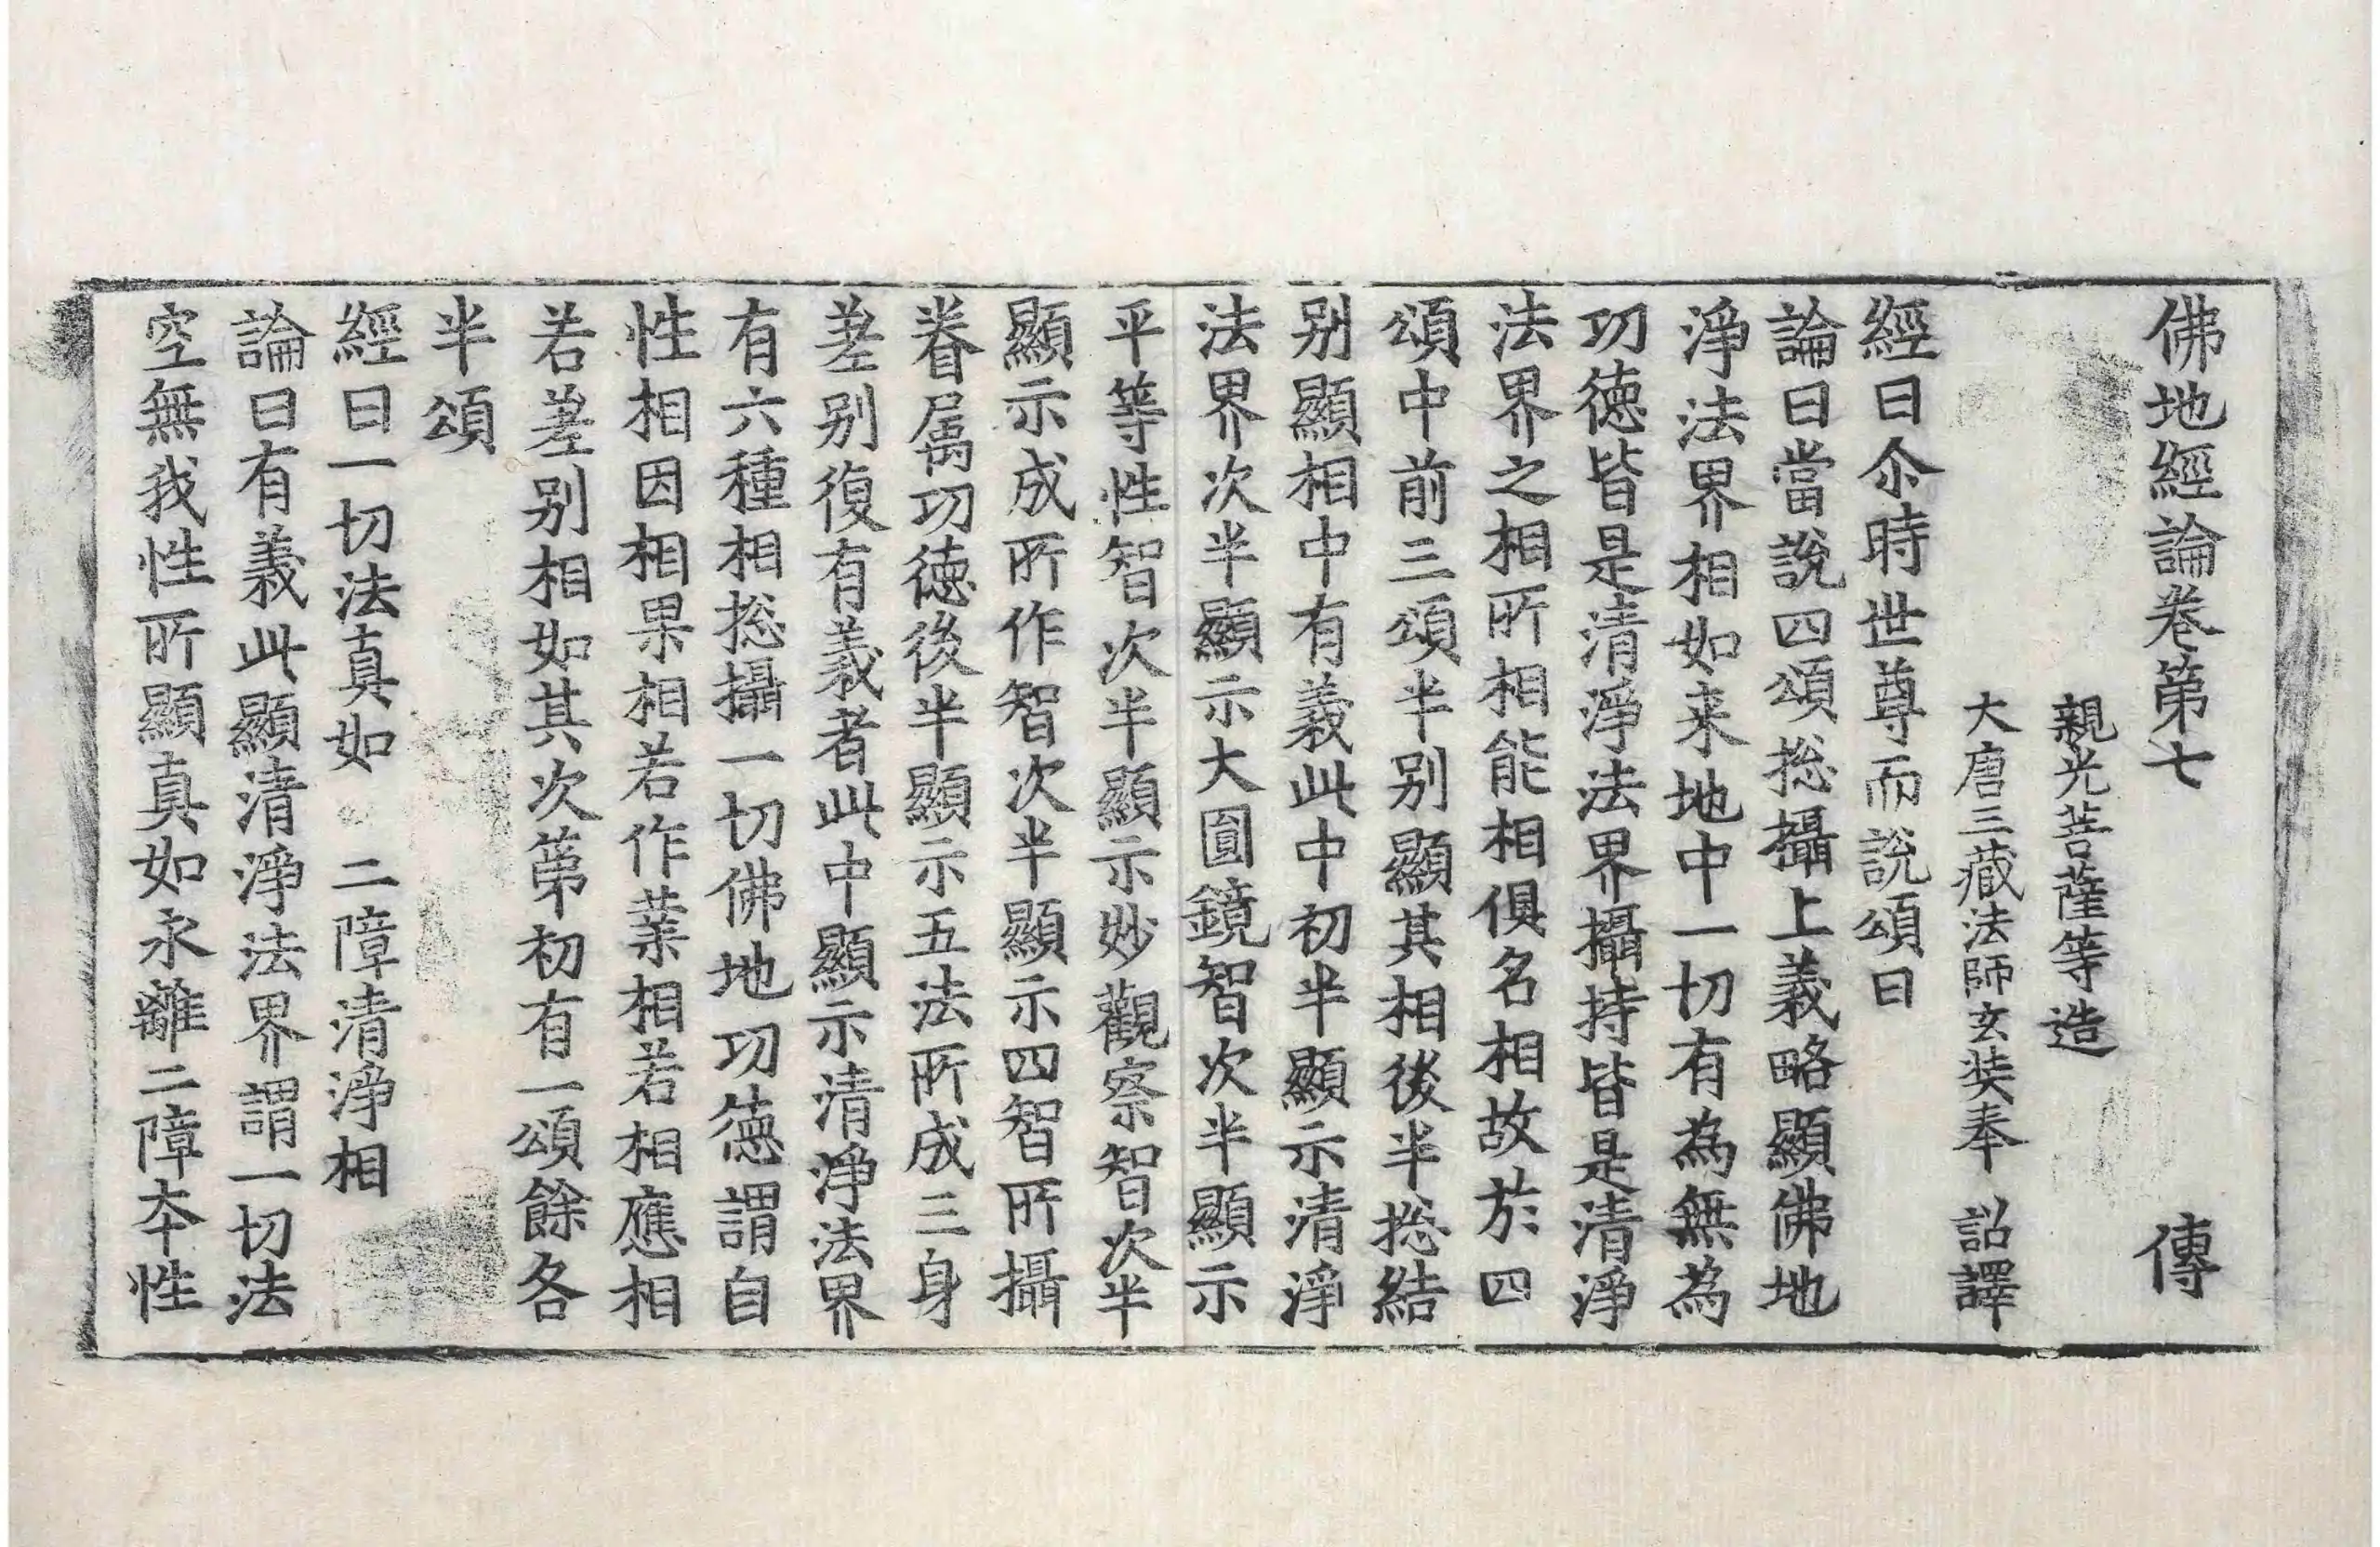 佛地經論卷第七 傳
親光菩薩等造
大唐三藏法師玄奘奉 詔譯
經曰尒時世尊而說頌曰
論曰當說四頌揔攝上義略顯佛地
淨法界相如来地中一切有為無為
功徳皆是清淨法界攝持皆是清淨
法界之相所相能相俱名相故於四
頌中前三頌半别顯其相後半揔結
别顯相中有義此中初半顯示清淨
法界次半顯示大圓鏡智次半顯示
平等性智次半顯示妙觀察智次半
顯示成所作智次半顯示四智所攝
眷屬功徳後半顯示五法所成三身
差别復有義者此中顯示清淨法界
有六種相揔攝一切佛地功徳謂自
性相因相果相若作業相若相應相
若差别相如其次第初有一頌餘各
半頌
經曰一切法真如 二障清淨相
論曰有義此顯清淨法界謂一切法
空無我性所顯真如永離二障本性